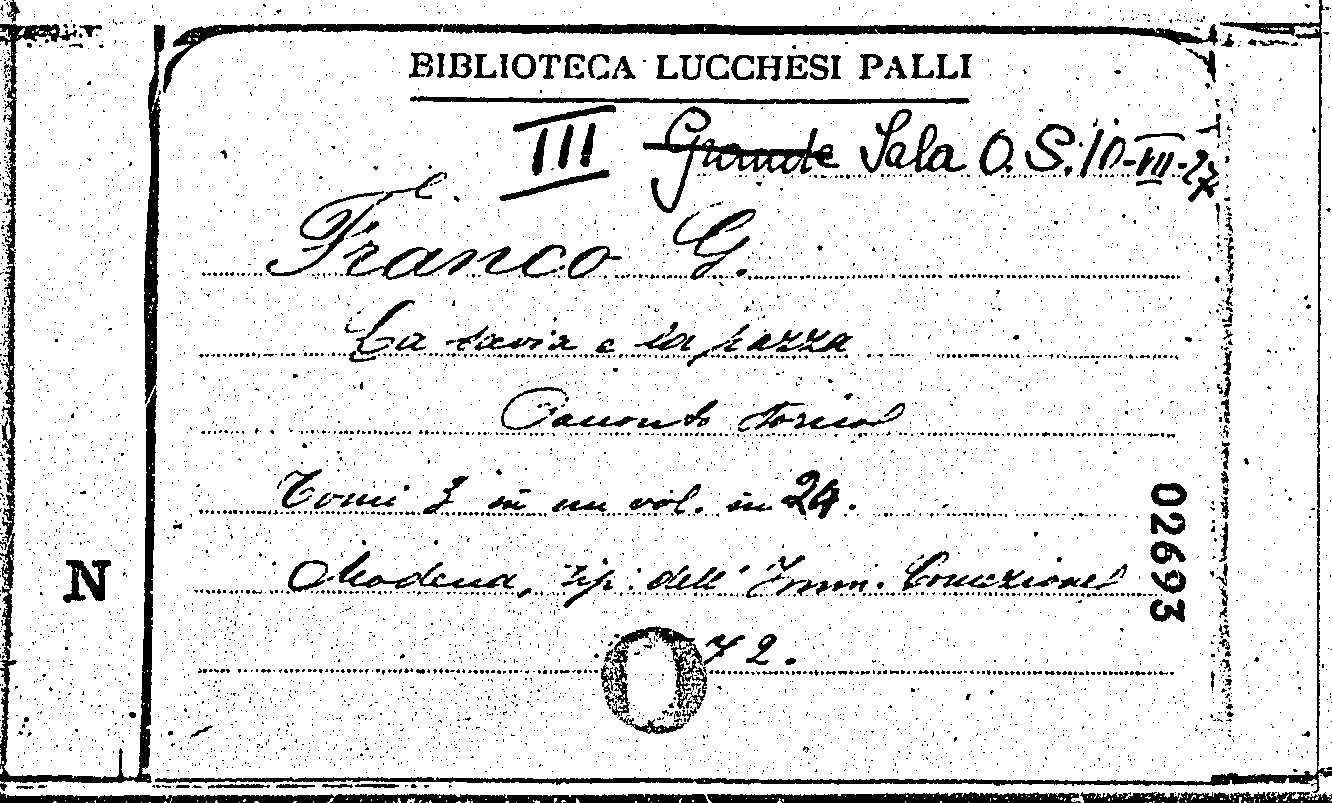 BIBLIOTECA LUCCHESI PALLI
III Grande Sala O. S. 10-VII-27
Franco G.
La savia e la pazza
Racconto storico
Tomi 3 in un vol. in 24.
02693
N
Modena, tip. dell' Imm. Concezione
72.